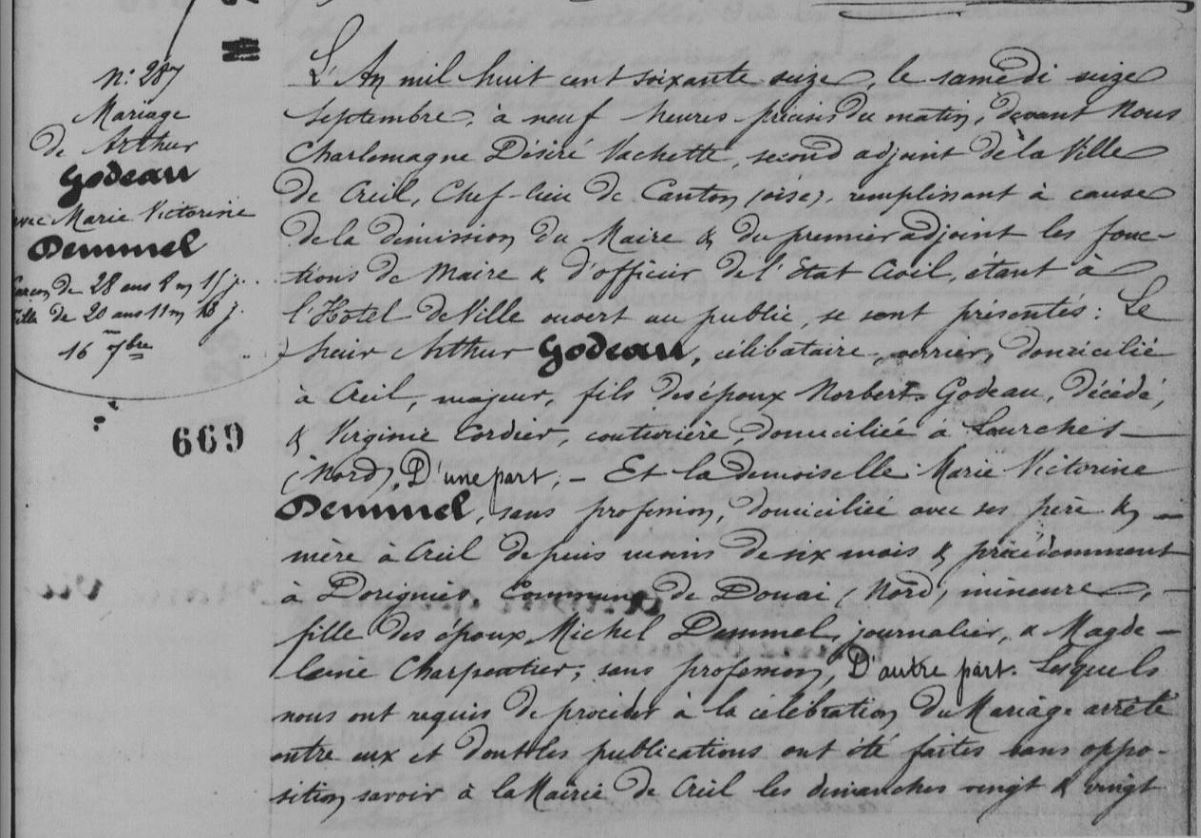 N.° 287
Mariage
de Arthur
Godeau
avec Marie Victorine
Demmel
Garçon de 28 ans 8 m 15 j.
fille de 20 ans 11 m 18 j.
16 7bre
669
L'An mil huit cent soixante seize, le samedi seize
Septembre, à neuf heures précises du matin, devant Nous
Charlemagne Désiré Vachette, second adjoint de la Ville
de Creil, Chef-lieu de Canton (oise), remplissant à cause
de la démission du Maire & du premier adjoint les fonc-
tions de Maire & d'officier de l'Etat Civil, étant à
l'Hotel de Ville ouvert au public, se sont présentés: Le
sieur Arthur Godeau, célibataire, verrier, domicilié
à Creil, majeur, fils des époux Norbert Godeau, décédé,
& Virginie Cordier, couturière, domiciliée à Lourches
(Nord), D'une part, - Et la demoiselle Marie Victorine
Demmel, sans profession, domiciliée avec ses père &
mère à Creil depuis moins de six mois & précédemment
à Dorignies, Commune de Douai (Nord) mineure,
fille des époux Michel Demmel, journalier, & Magde-
leine Charpentier, sans profession, D'autre part. Lesquels
nous ont requis de procéder à la célébration du Mariage arrêté
entre eux et dont les publications ont été faites sans oppo-
sition, savoir à la Mairie de Creil les dimanches vingt & vingt